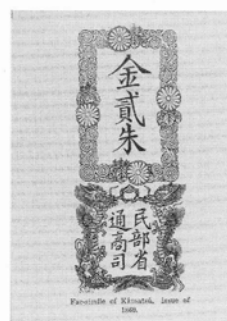 金貳朱
民部省
通商司
Fac-simile of Kinsatsú, issue of
1869.